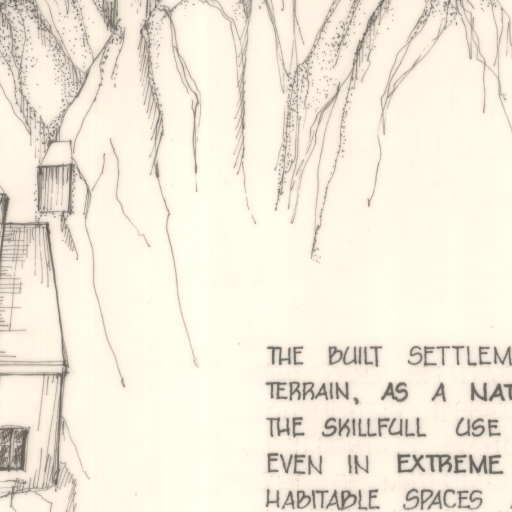 THE BUILT SETTLEM
TERRAIN, AS A NAT
THE SKILLFULL USE
EVEN IN EXTREME
HABITABLE SPACES